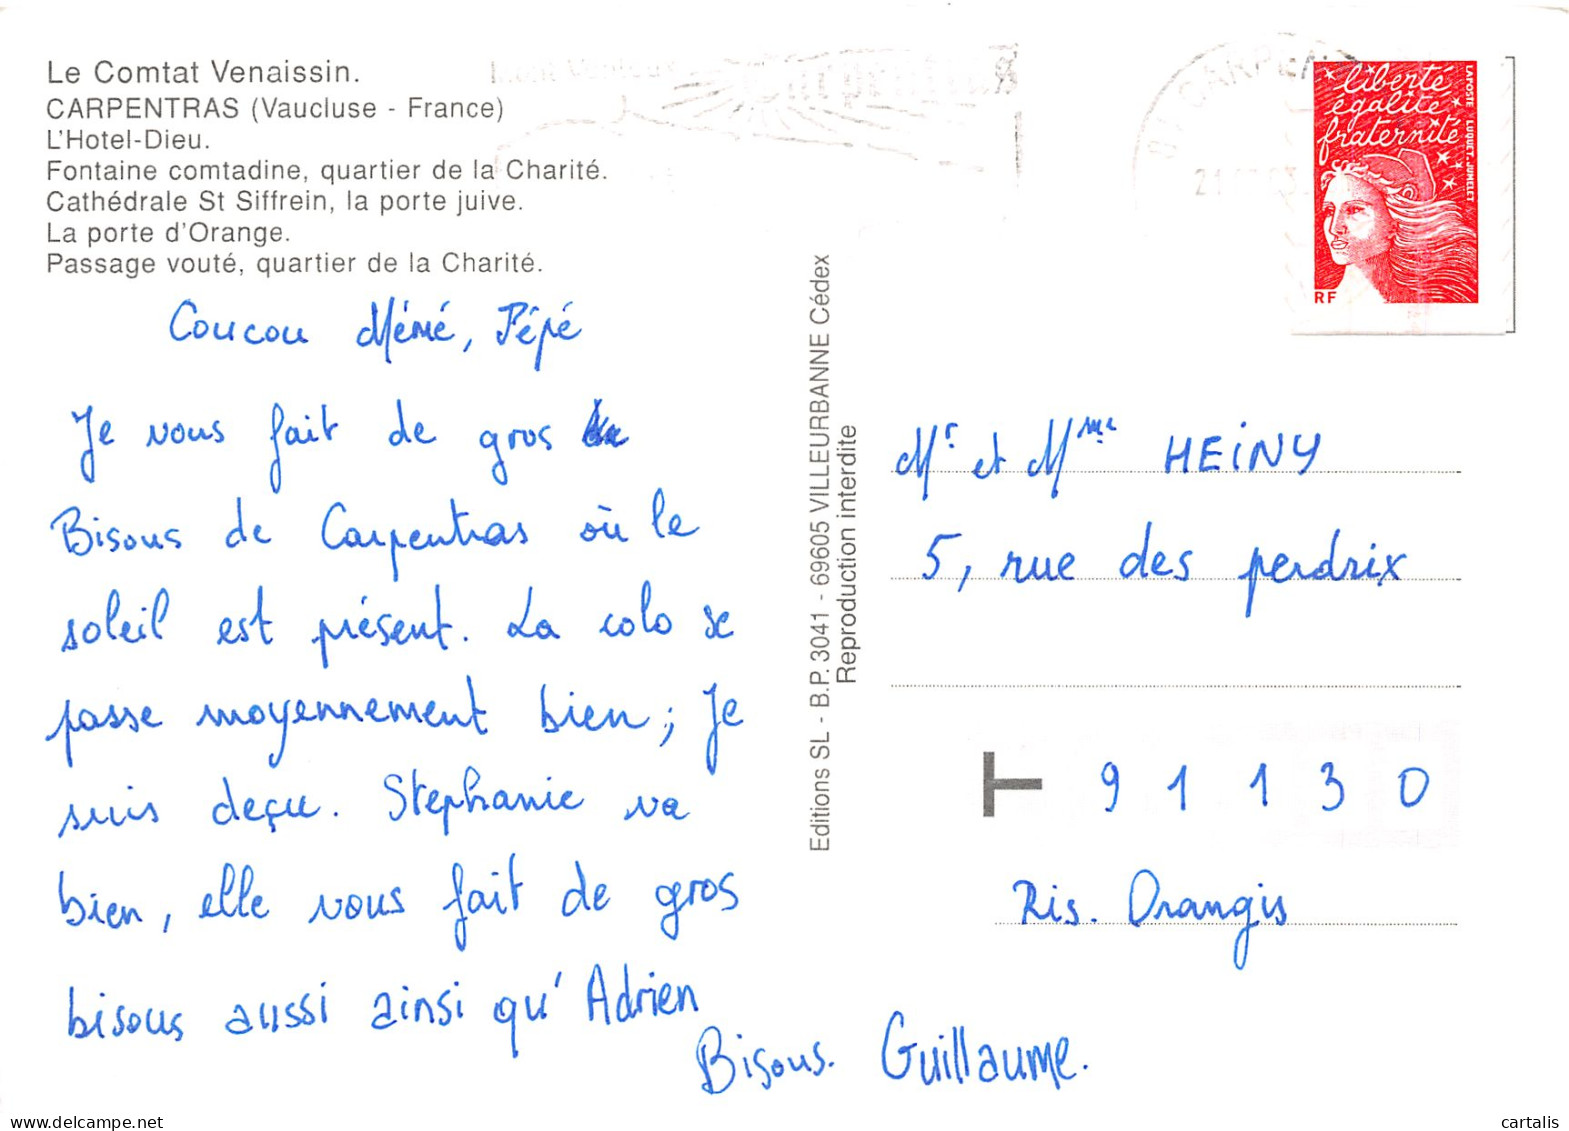 Le Comtat Venaissin.
CARPENTRAS (Vaucluse - France)
L'Hotel-Dieu.
Fontaine comtadine, quartier de la Charité.
Cathédrale St Siffrein, la porte juive.
La porte d'Orange.
Passage vouté, quartier de la Charité.
Coucou Mémé, Pépé
Je vous fait de gros
Bisous de Carpentras où le
soleil est présent. La colo se
passe moyennement bien; Je
suis deçu. Stephanie va
bien, elle vous fait de gros
bisous aussi ainsi qu'Adrien
Bisous. Guillaume.
Editions SL - B.P. 3041 - 69605 VILLEURBANNE Cédex
Reproduction interdite
Mont Ventoux
CARPEN
liberté
égalité
fraternité
LA POSTE LUQUET-JUMELET
RF
Mr et Mme HEINY
5, rue des perdrix
T 91130
Ris. Orangis
cartalis